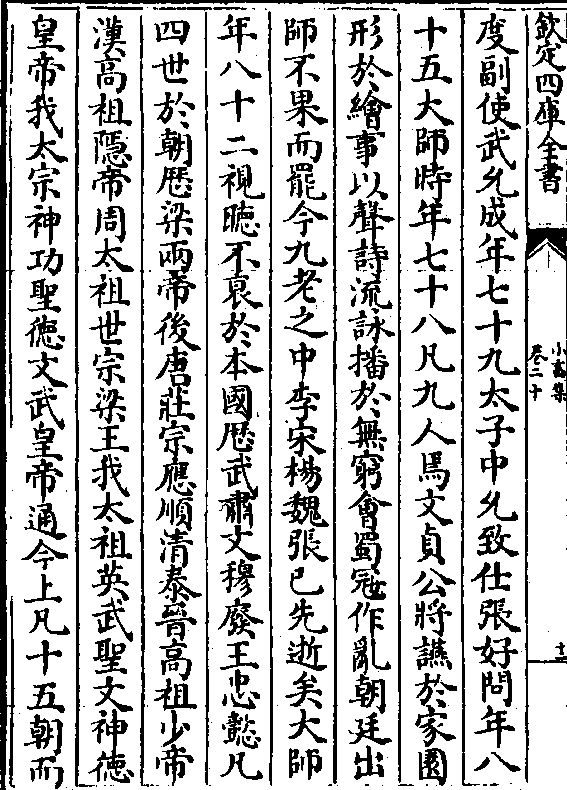 欽定四庫全書
小畜集
卷二十
十二
度副使武允成年七十九太子中允致仕張好問年八
十五大師時年七十八凡九人焉文貞公將讌於家園
形於繪事以聲詩流詠播於無窮會蜀冦作亂朝廷出
師不果而罷今九老之中李宋楊魏張已先逝矣大師
年八十二視聴不衰於本國歴武肅文穆廢王忠懿凡
四世於朝歴梁兩帝後唐莊宗應順清泰晉高祖少帝
漢高祖隱帝周太祖世宗梁王我太祖英武聖文神徳
皇帝我太宗神功聖徳文武皇帝通今上凡十五朝而